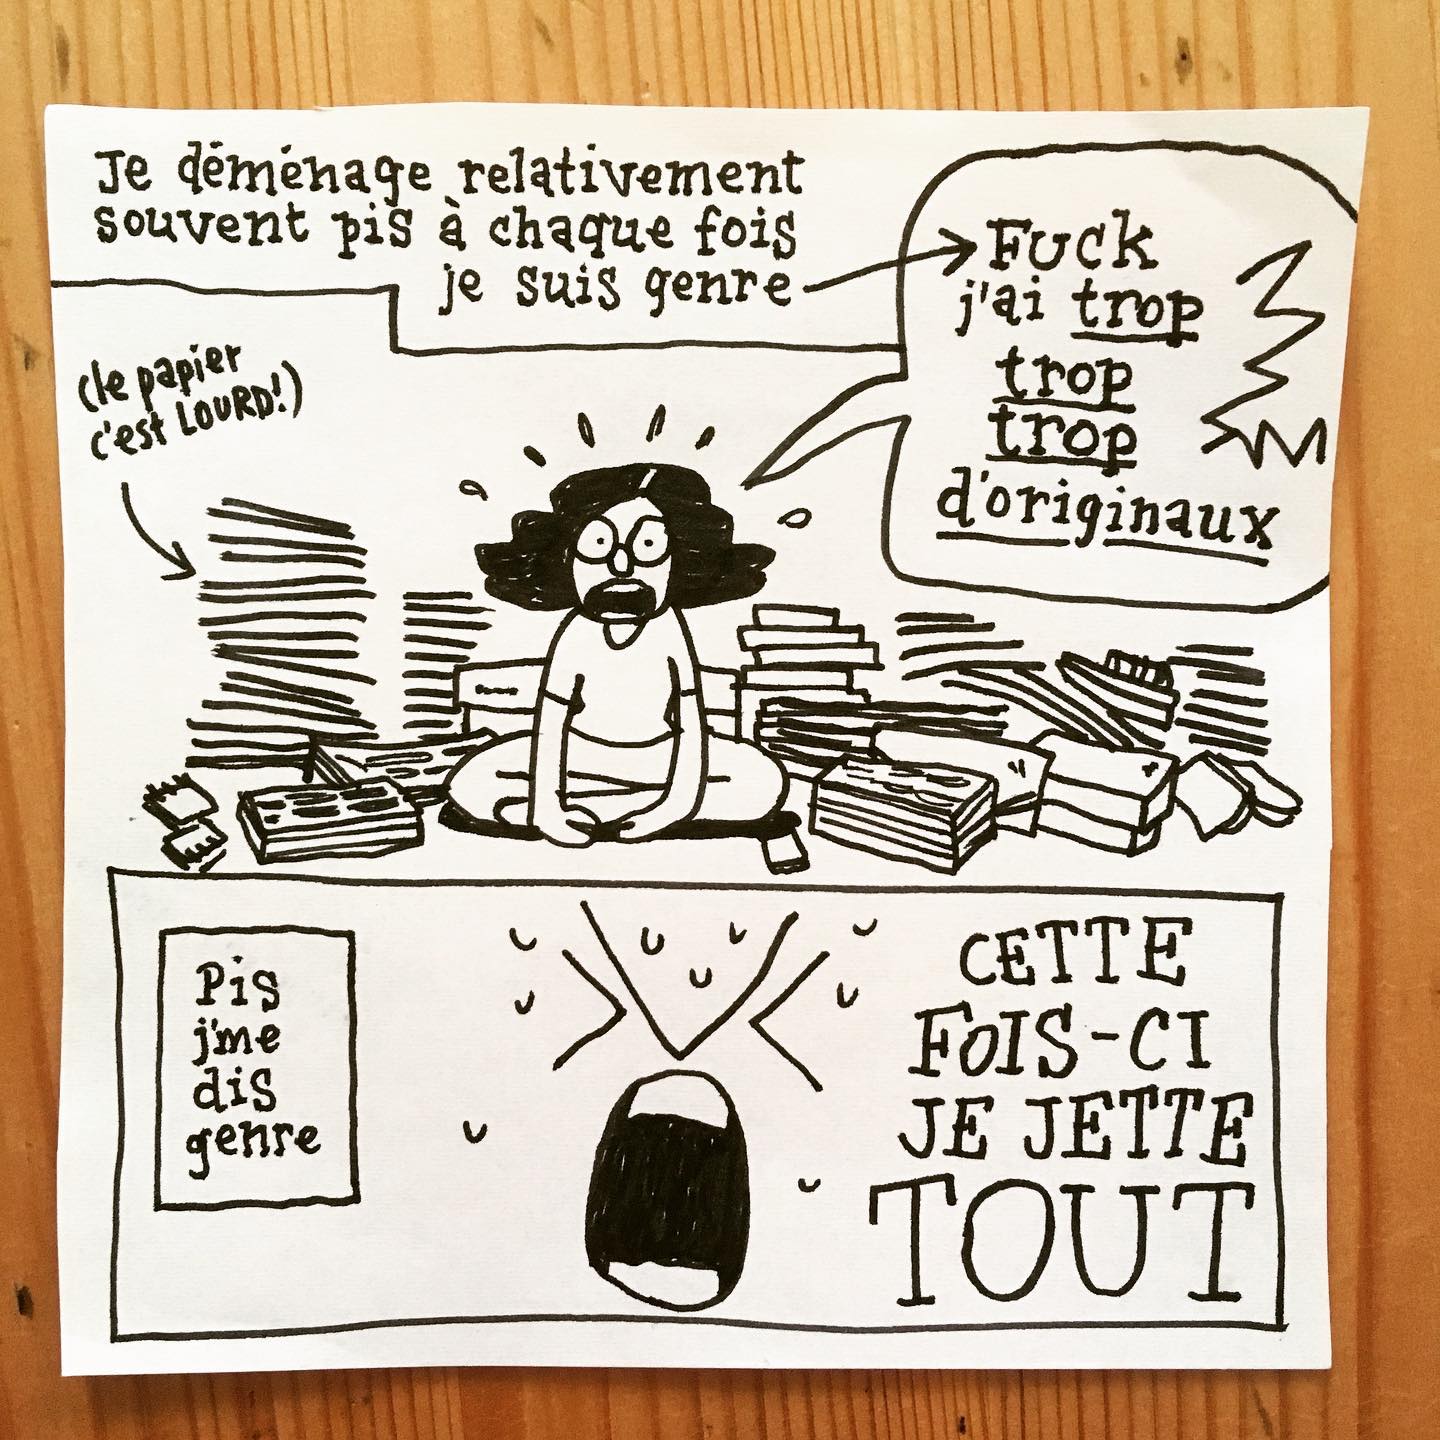 Je déménage relativement
souvent pis à chaque fois
je suis genre
Fuck
j'ai trop
trop
trop
d'originaux
(le papier
c'est LOURD!)
Pis
j'me
dis
genre
CETTE
FOIS-CI
JE JETTE
TOUT